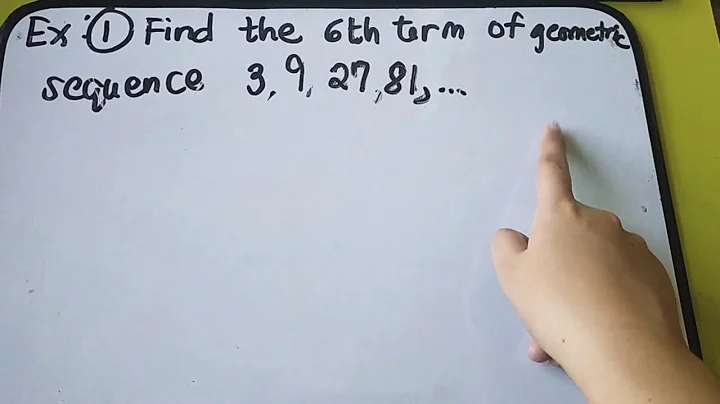 Ex: ① Find the 6th term of geometric
sequence 3, 9, 27, 81, ...